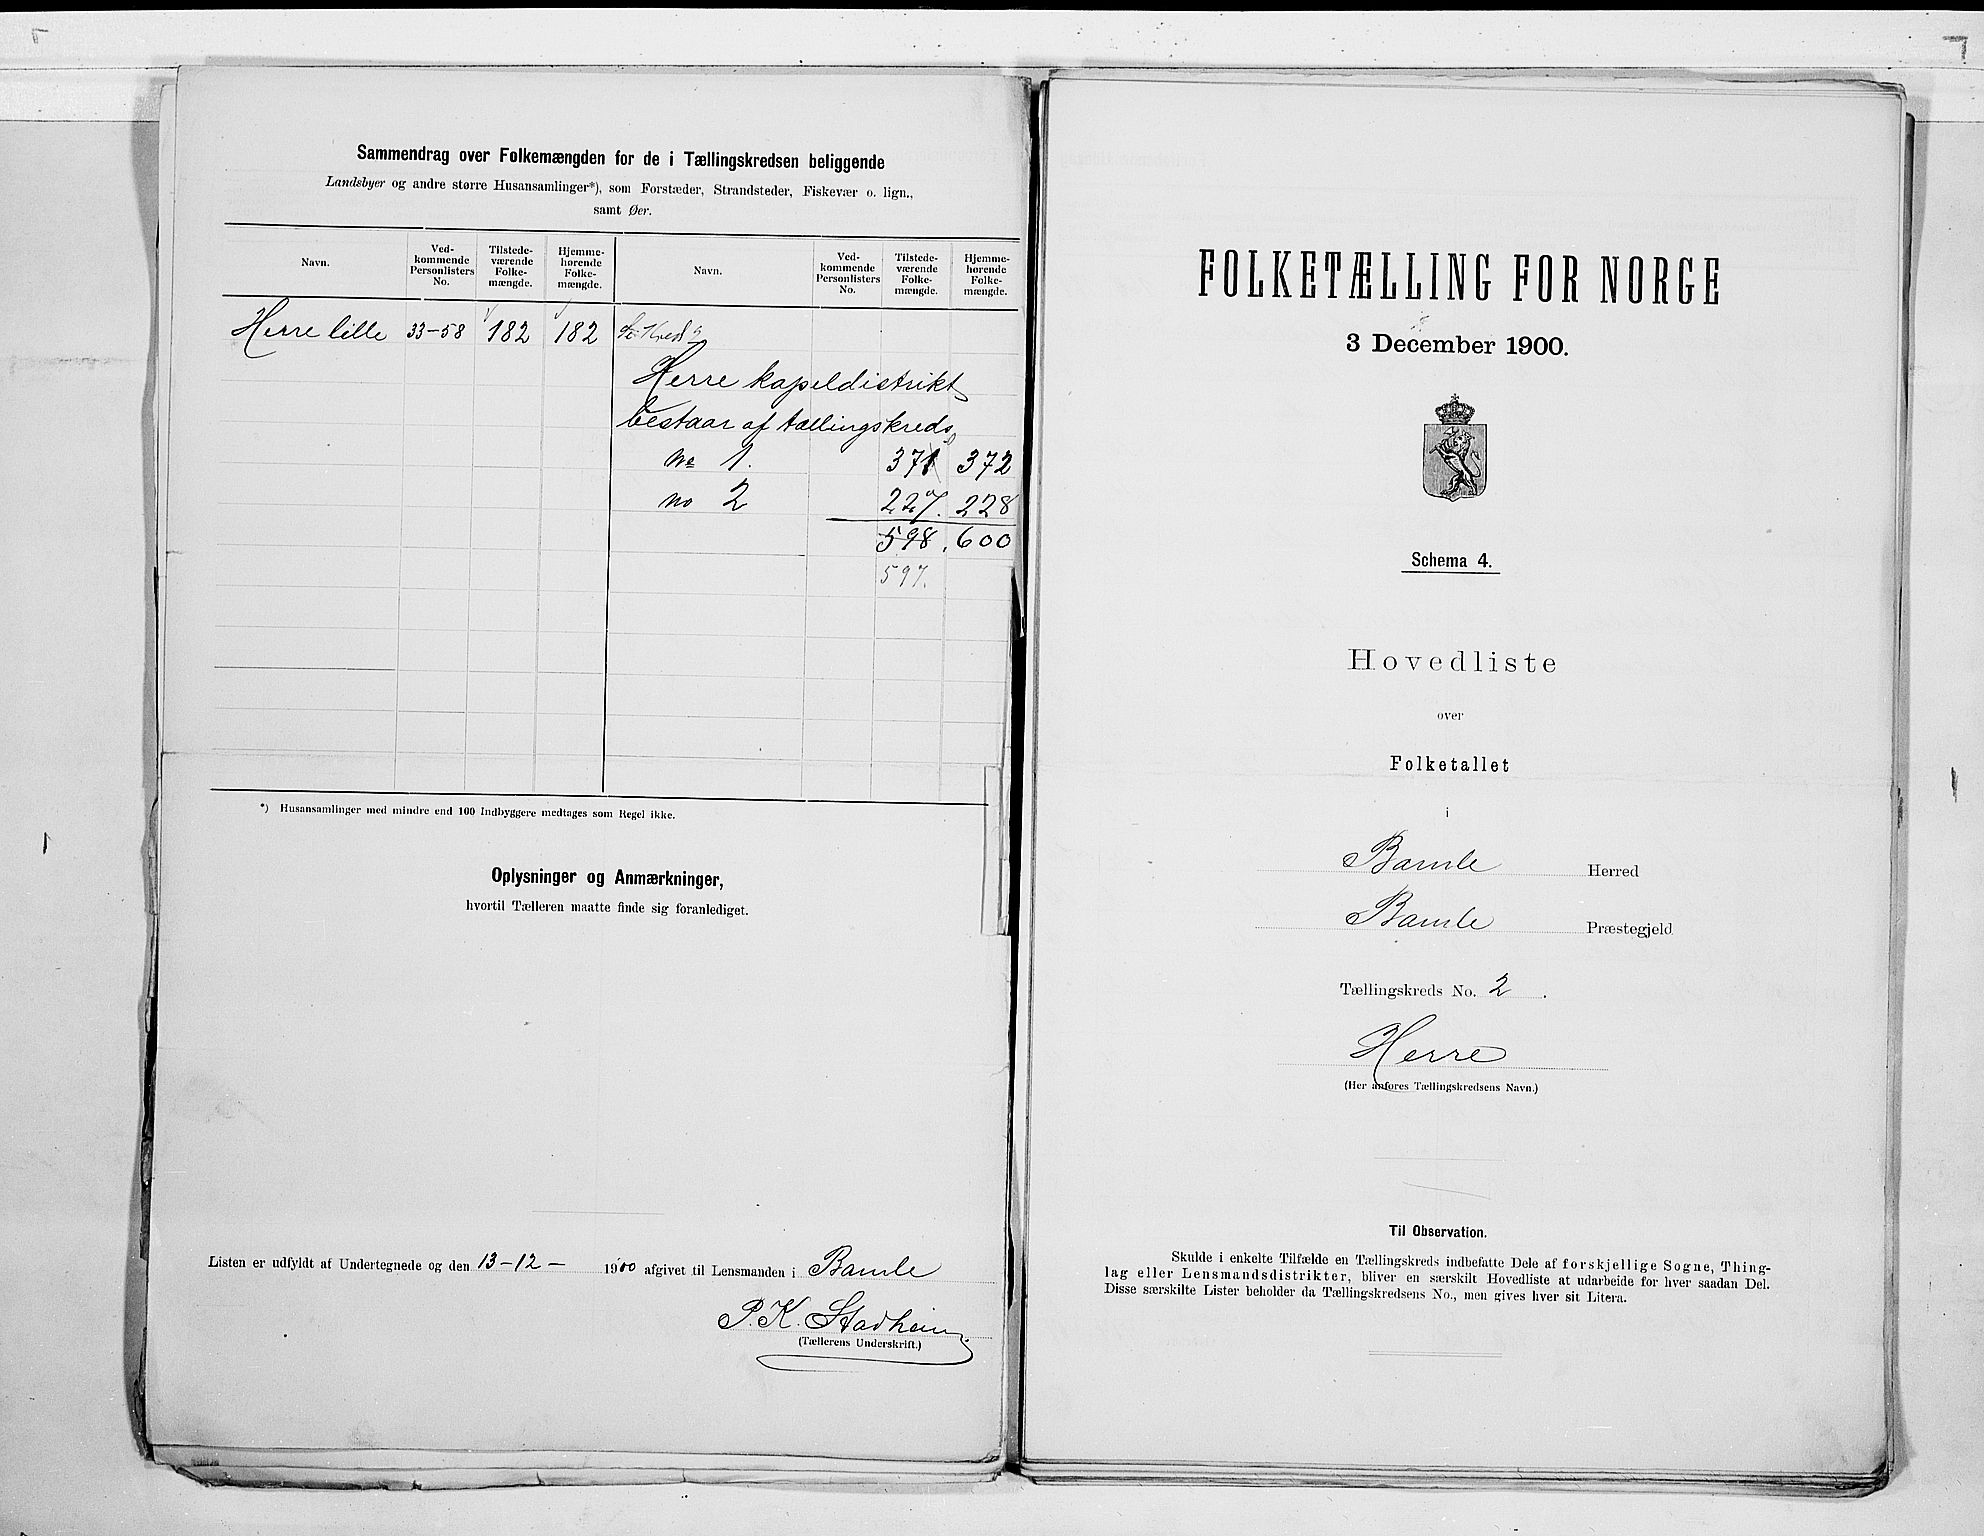 Sammendrag over Folkemængden for de i Tællingskredsen beliggende
Landsbyer og andre større Husansamlinger*), som Forstæder, Strandsteder, Fiskevær o. lign.,
samt Øer.
Navn. Ved-kommende Personlisters No. Tilstede-værende Folke-mængde. Hjemme-hørende Folke-mængde. Navn. Ved-kommende Personlisters No. Tilstede-værende Folke-mængde. Hjemme-hørende Folke-mængde.
Herre lille 33-58 182 182
Herre kapeldistrikt
bestaar af tællingskreds
No 1. 371 372
no 2 227. 228
598. 600
597.
*) Husansamlinger med mindre end 100 Indbyggere medtages som Regel ikke.
Oplysninger og Anmærkninger,
hvortil Tælleren maatte finde sig foranlediget.
Listen er udfyldt af Undertegnede og den 13-12- 1900 afgivet til Lensmanden i Bamle
P. K. Stadheim
(Tællerens Underskrift.)
FOLKETÆLLING FOR NORGE
3 December 1900.
Schema 4.
Hovedliste
over
Folketallet
i
Bamle Herred
Bamle Præstegjeld
Tællingskreds No. 2.
Herre
(Her anføres Tællingskredsens Navn.)
Til Observation.
Skulde i enkelte Tilfælde en Tællingskreds indbefatte Dele af forskjellige Sogne, Thing-
lag eller Lensmandsdistrikter, bliver en særskilt Hovedliste at udarbeide for hver saadan Del.
Disse særskilte Lister beholder da Tællingskredsens No., men gives hver sit Litera.